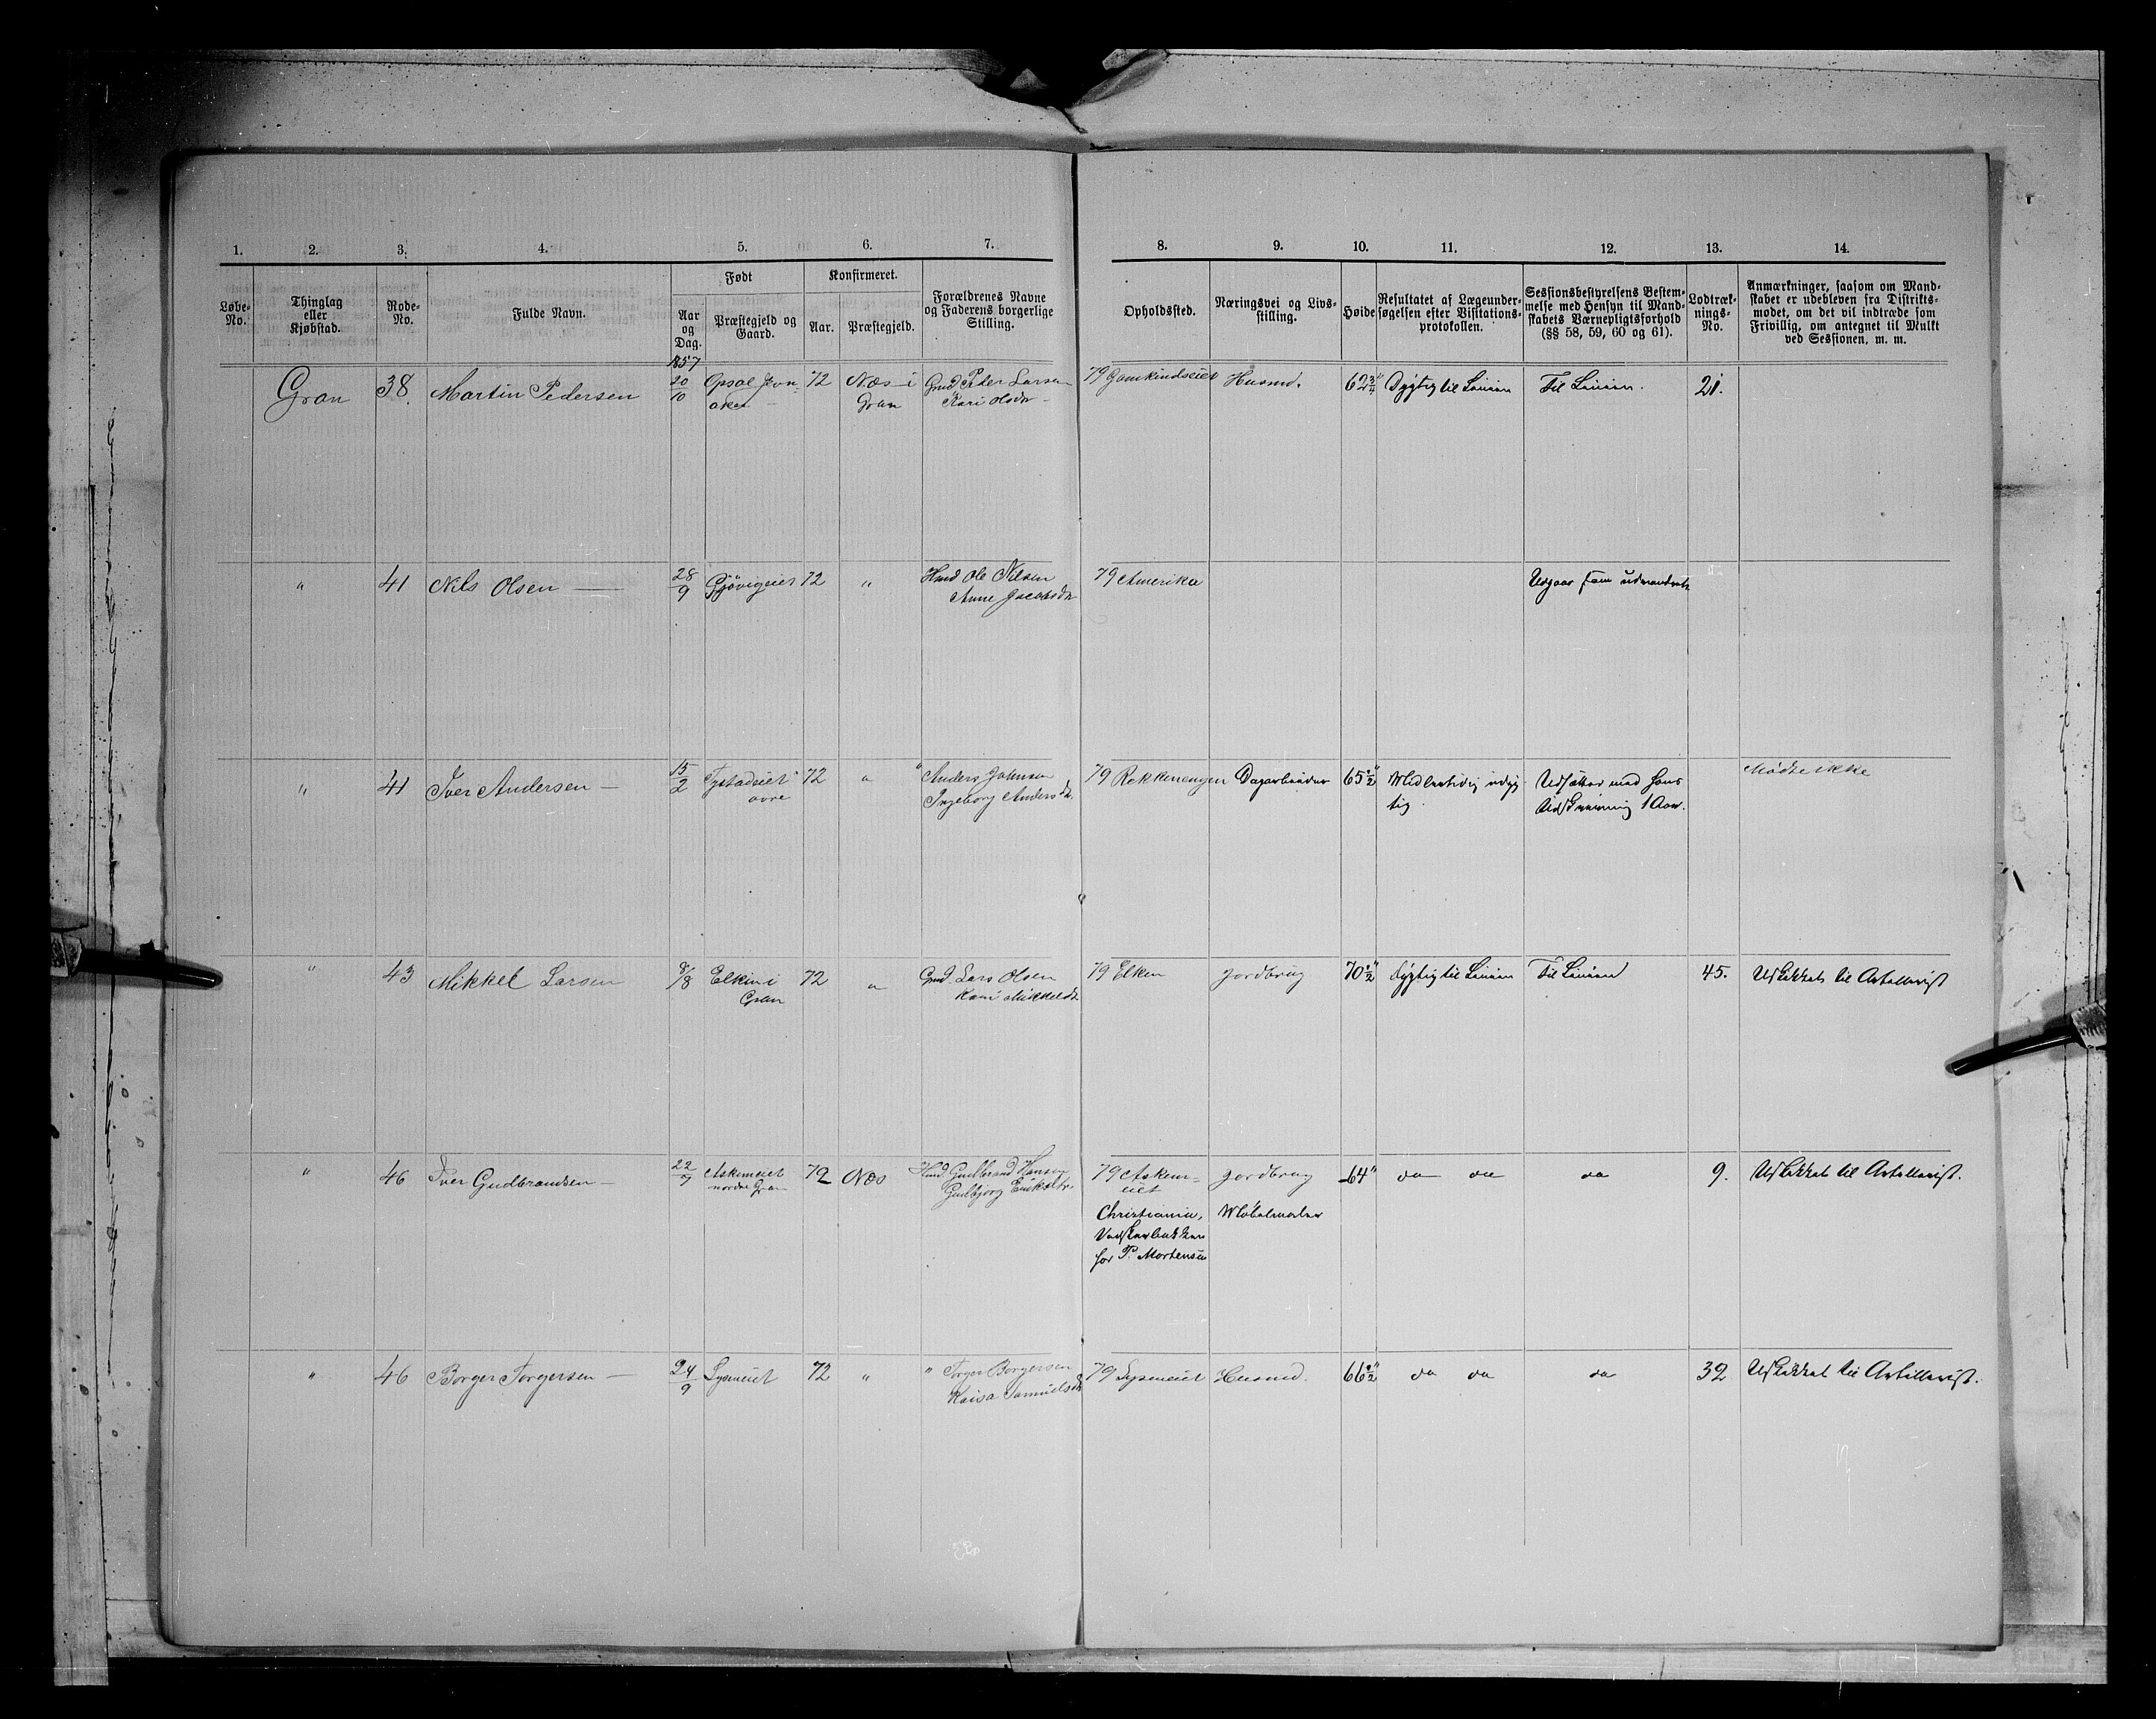 1. 2. 3. 4. 5. 6. 7. 8. 9. 10. 11. 12. 13. 14.
Løbe-No.
Thinglag eller Kjøbstad.
Rode-No.
Fulde Navn.
Født
Aar og Dag.
Præstegjeld og Gaard.
Konfirmeret.
Aar.
Præstegjeld.
Forældrenes Navne og Faderens borgerlige Stilling.
Opholdssted.
Næringsvei og Livsstilling.
Høide
Resultatet af Lægeundersøgelsen efter Visitationsprotokollen.
Sessionsbestyrelsens Bestemmelse med Hensyn til Mandskabets Værnepligtsforhold (§§ 58, 59, 60 og 61).
Lodtræknings-No.
Anmærkninger, saasom om Mandskabet er udebleven fra Distriktsmødet, om det vil indtræde som Frivillig, om antegnet til Mulkt ved Sessionen, m. m.
1857
Gran 38. Martin Pedersen 20/10 Opsal Jevnaker 72 Næs i Gran
Gmd Peter Larsen
Kari Olsdr
79 Gamkindseiet Husmd. 62 3/4" Dygtig til Linien Til Linien. 21.
" 41 Nils Olsen 28/9 Gjövigeiet 72 "
Hmd Ole Nilsen
Anne Jacobsdr
79 Amerika Udgaar som udvandret
" 41 Iver Andersen 15/2 Tystadeiet övre 72 " "
Anders Johnsen
Ingeborg Andersdr.
79 Rekkenengen Dagarbeider 65 1/2" Midlertidig udygtig Udsættes med hans Udskrivning 1 Aar. Mödte ikke
" 43 Mikkel Larsen 8/8 Elken i Gran 72 "
Gmd. Lars Olsen
Kari Mikkelsdr
79 Elken Jordbrug 70 1/2" Dygtig til Linien Til Linien 45. Udskikket til Artillerist
" 46 Iver Gudbrandsen 22/7 Askimeiet nordre Gran 72 Næs
Hmd Gudbrand Hansen
Gudbjorg
79 Askimeiet Jordbrug 64" do do do 9. Udskikket til Artillerist.
Christiania, Möbelmaler
Vadskerbakken
hos P. Mortensen
" 46 Borger Torgersen 24/9 Lysmeiet 72 "
" Torger Borgersen
Kaisa Samuelsdr
79 Lysmeiet Husmd. 66 1/2" do do do 32 Udskikket til Artillerist.